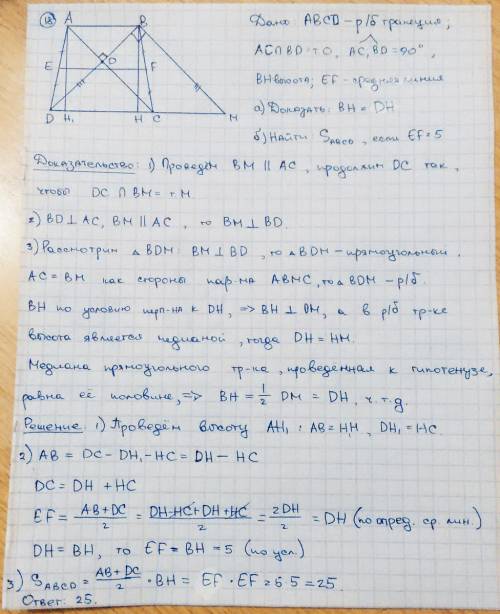 18
A B
O
E F
D H₁ H C M
Дано: ABCD – р/б трапеция;
AC∩BD = т.O, AC,BD = 90°,
BH высота; EF – средняя линия
а) Доказать: BH = DH
б) Найти: S_ABCD, если EF = 5
Доказательство: 1) Проведём BM ∥ AC, продолжим DC так,
чтобы DC ∩ BM = т.M.
2) BD ⊥ AC, BM ∥ AC, то BM ⊥ BD.
3) Рассмотрим △BDM: BM ⊥ BD, то △BDM – прямоугольный.
AC = BM как стороны пар-ма ABMC, то △BDM – р/б.
BH по условию перп-на к DH, => BH ⊥ DM, а в р/б тр-ке
высота является медианой, тогда DH = HM.
Медиана прямоугольного тр-ка, проведённая к гипотенузе,
равна её половине, => BH = 1/2 DM = DH, ч.т.д.
Решение: 1) Проведём высоту AH₁: AB = H₁H, DH₁ = HC.
2) AB = DC – DH₁ – HC = DH – HC
DC = DH + HC
EF = (AB + DC)/2 = (DH – HC + DH + HC)/2 = 2DH/2 = DH (по опред. ср. лин.)
DH = BH, то EF = BH = 5 (по усл.)
3) S_ABCD = (AB + DC)/2 · BH = EF · EF = 5·5 = 25.
Ответ: 25.